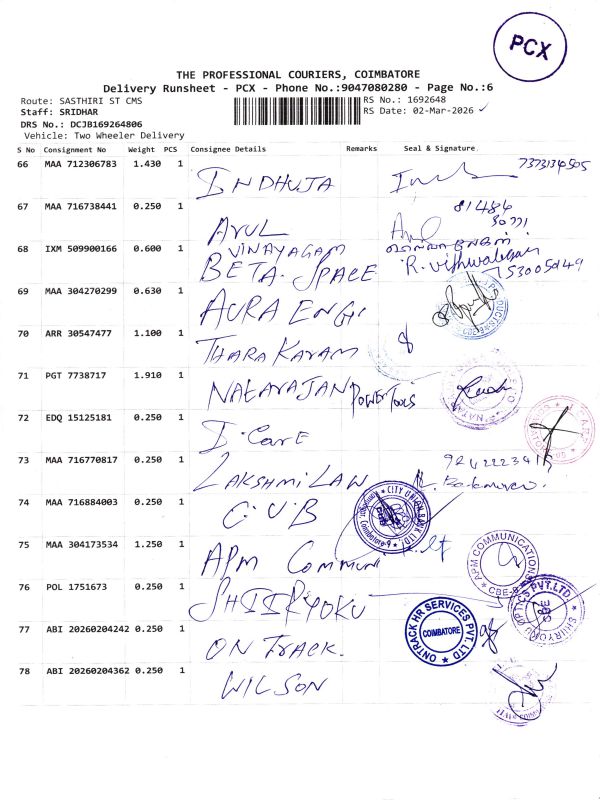 PCX
THE PROFESSIONAL COURIERS, COIMBATORE
Delivery Runsheet - PCX - Phone No.:9047080280 - Page No.:6
Route: SASTHIRI ST CMS
RS No.: 1692648
Staff: SRIDHAR
RS Date: 02-Mar-2026
DRS No.: DCJB169264806
Vehicle: Two Wheeler Delivery
S No Consignment No Weight PCS Consignee Details Remarks Seal & Signature
66 MAA 712306783 1.430 1 INDHUJA 7373134505
67 MAA 716738441 0.250 1 ARUL 81484
VINAYAGAM
68 IXM 509900166 0.600 1 BETA-SPACE R. Vishwalingam
7530050149
69 MAA 304270299 0.630 1 AURA ENGI
70 ARR 30547477 1.100 1 THARA KARAM
71 PGT 7738717 1.910 1 NATARAJAN POWER TOOLS
72 EDQ 15125181 0.250 1 I-CARE
73 MAA 716770817 0.250 1 LAKSHMI LAW
74 MAA 716884003 0.250 1 C.U.B CITY UNION BANK LTD Coimbatore-9
75 MAA 304173534 1.250 1 APM Communi APM COMMUNICATION CBE-9
76 POL 1751673 0.250 1 SHIIRYOKU SHIRYOKU OPTICS PVT.LTD. CBE
77 ABI 20260204242 0.250 1 ON TRACK. ONTRACK HR SERVICES PVT. LTD COIMBATORE
78 ABI 20260204362 0.250 1 WILSON